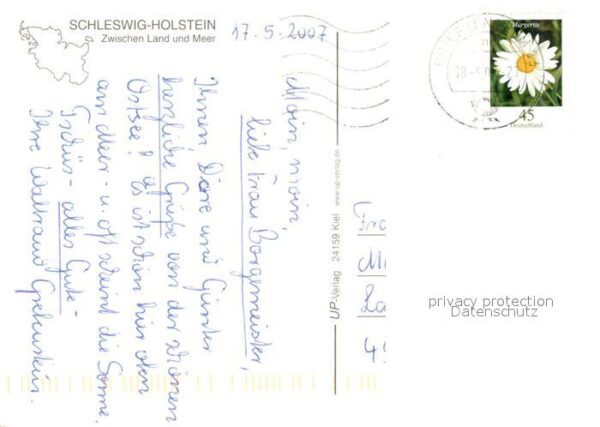 SCHLESWIG-HOLSTEIN
Zwischen Land und Meer
17.5.2007
Moin, moin,
liebe Frau Borgemeister,
Ihnen Dore und Günter
herzliche Grüße von der schönen
Ostsee! Es ist schön hier oben
am Meer - u. oft scheint die Sonne.
Tschüs - alles Gute -
Ihre Waltraud
UP-Verlag 24159 Kiel www.up-verlag.de
Margerite
45
Deutschland
Fra
M
La
49
privacy protection
Datenschutz